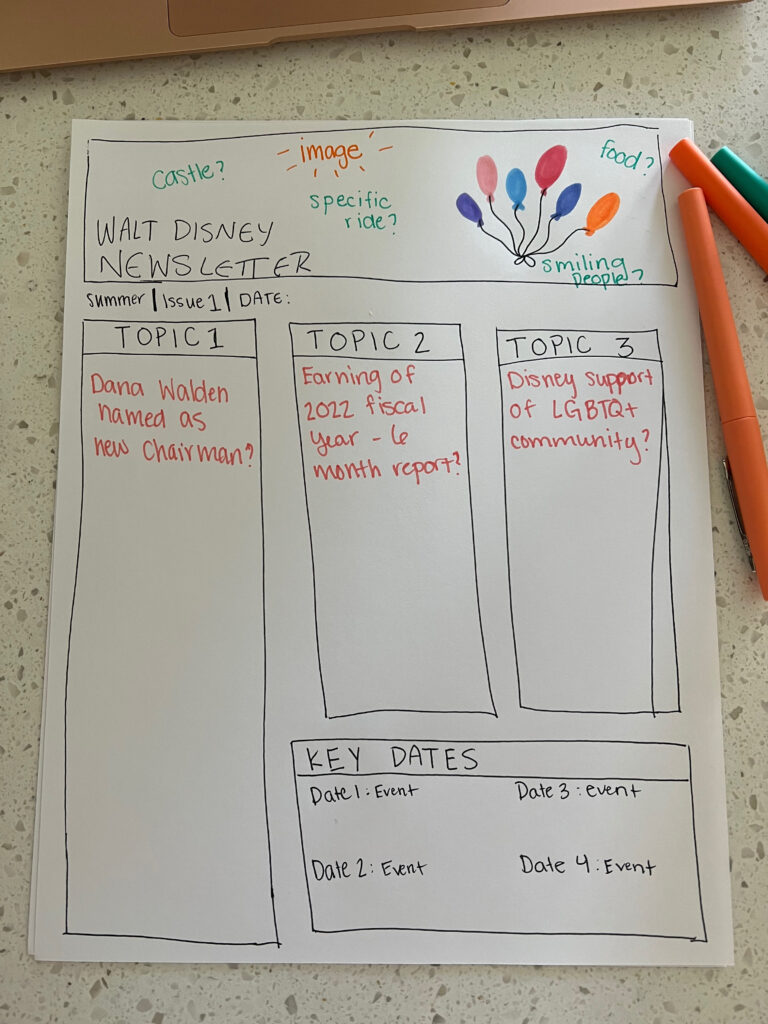 Castle?
image
food?
specific
ride?
WALT DISNEY
NEWSLETTER
smiling
people?
Summer | Issue 1 | DATE:
TOPIC 1
Dana Walden
named as
new Chairman?
TOPIC 2
Earning of
2022 fiscal
year - 6
month report?
TOPIC 3
Disney support
of LGBTQ+
community?
KEY DATES
Date 1: Event
Date 3: event
Date 2: Event
Date 4: Event